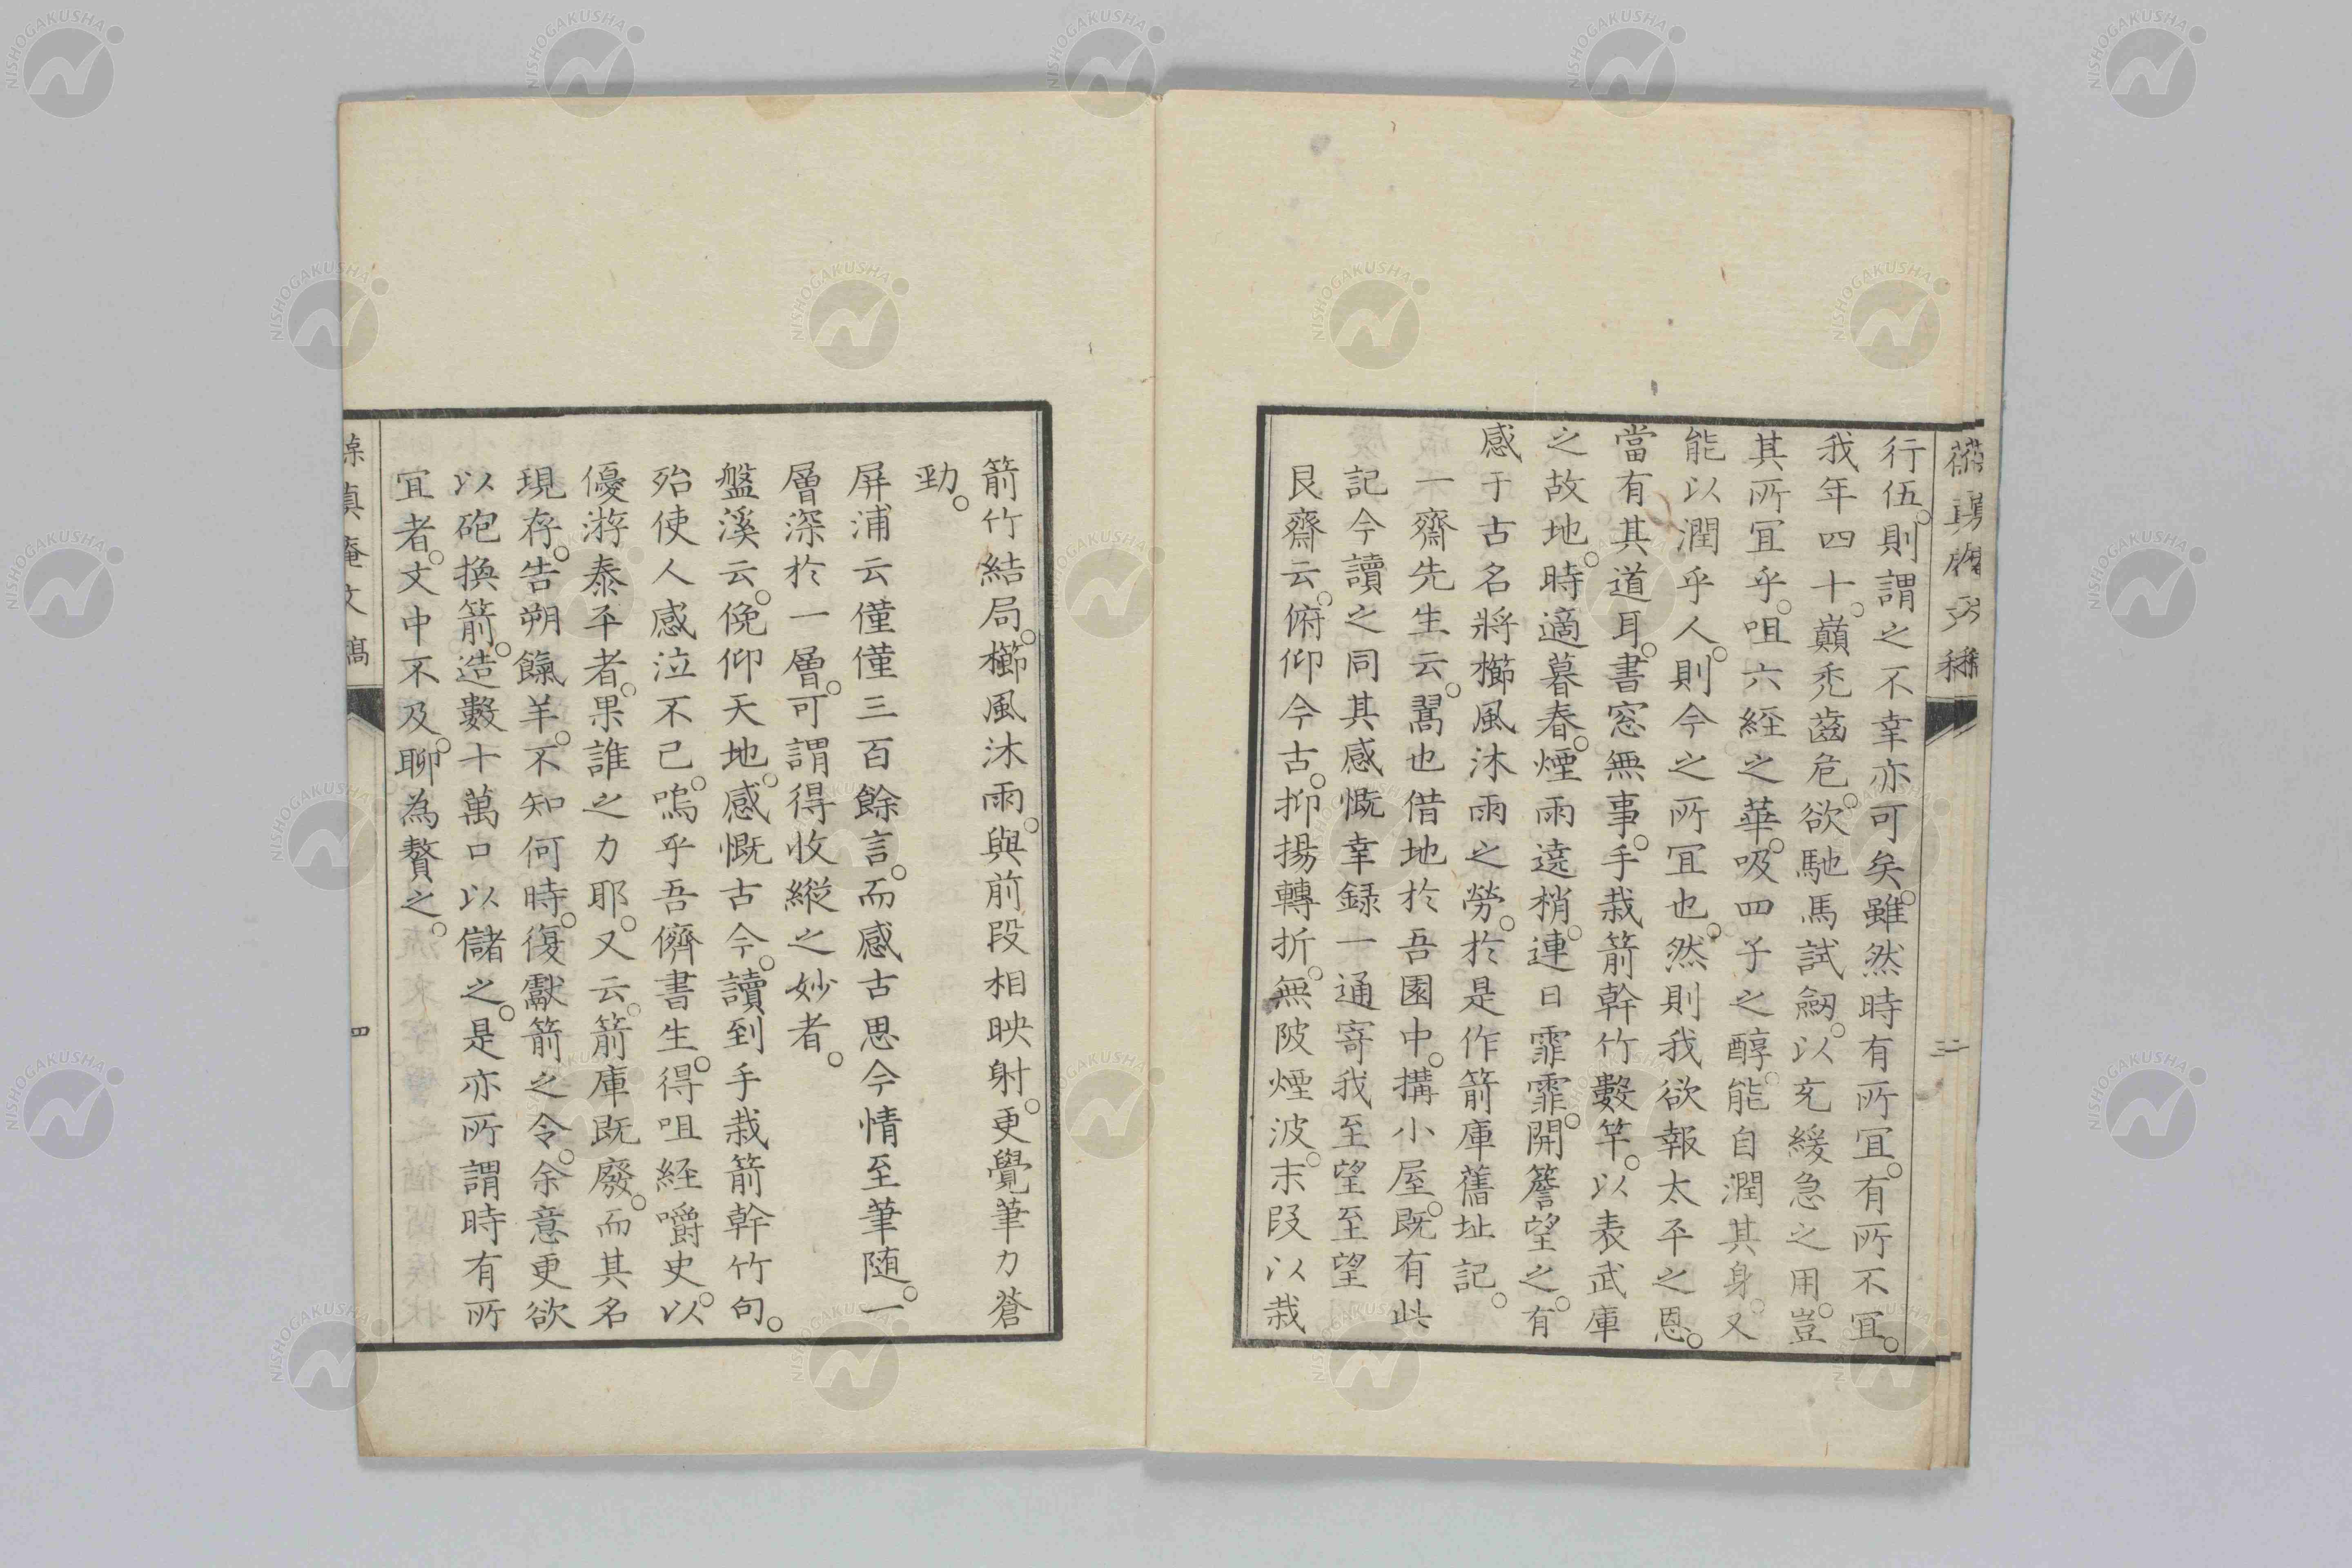 行伍。則謂之不幸亦可矣。雖然時有所宜。有所不宜。
我年四十。巔禿齒危。欲馳馬試劒。以充緩急之用。豈
其所宜乎。咀六経之華。吸四子之醇。能自潤其身。又
能以潤乎人。則今之所宜也。然則我欲報太平之恩。
當有其道耳。書窓無事。手栽箭幹竹數竿。以表武庫
之故地。時適暮春。煙雨遶梢。連日霏霏。開簷望之。有
感于古名將櫛風沐雨之勞。於是作箭庫舊址記。
一齋先生云。曩也借地於吾園中。搆小屋。既有此
記今讀之同其感慨幸録一通寄我至望至望
艮齋云。俯仰今古。抑揚轉折。無陂煙波。末段以栽
箭竹結局。櫛風沐雨。與前段相映射。更覺筆力蒼
勁。
屏浦云僅僅三百餘言。而感古思今情至筆随。一
層深於一層。可謂得收縦之妙者。
盤溪云。俛仰天地。感慨古今。讀到手栽箭幹竹句。
殆使人感泣不已。嗚乎吾儕書生。得咀経嚼史。以
優游泰平者。果誰之力耶。又云。箭庫既廢。而其名
現存。告朔餼羊。不知何時。復獻箭之令。余意更欲
以砲換箭。造數十萬口以儲之。是亦所謂時有所
宜者。文中不及。聊為贅之。
四